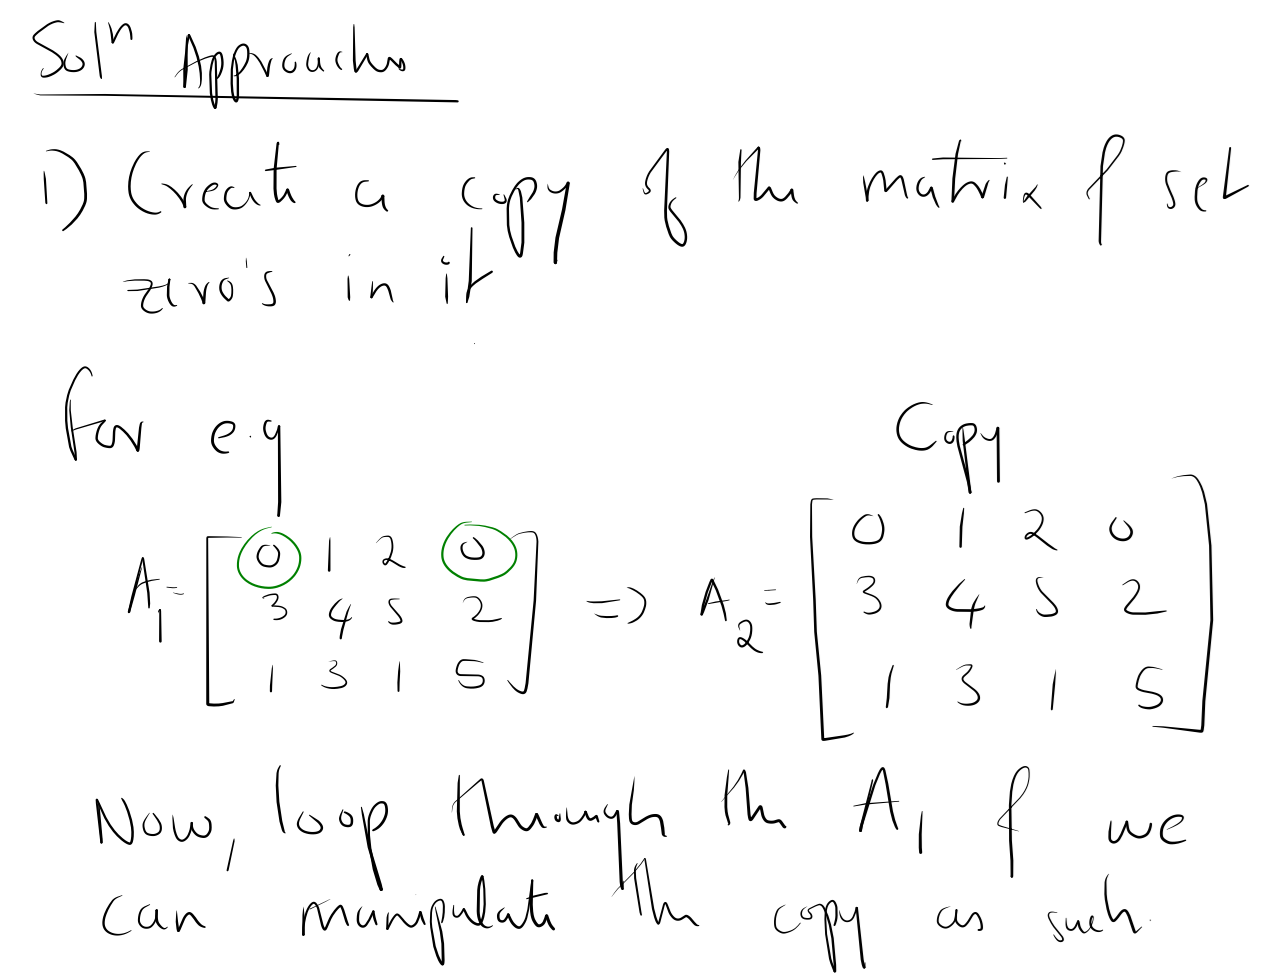 Solⁿ Approaches
1) Create a copy of the matrix & set
zero's in it
for e.g
Copy
A₁ = [ 0 1 2 0
3 4 5 2
1 3 1 5 ]
=> A₂ = [ 0 1 2 0
3 4 5 2
1 3 1 5 ]
Now, loop through the A₁ & we
can manipulate the copy as such.